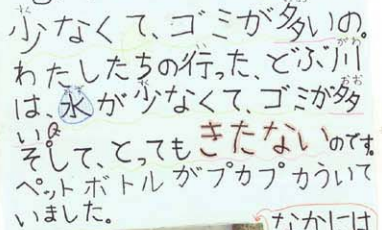 少なくて、ゴミが多いの。
わたしたちの行った、どぶ川
は、水が少なくて、ゴミが多
い。
そして、とっても きたないのです。
ペットボトルがプカプカういて
いました。
なかには